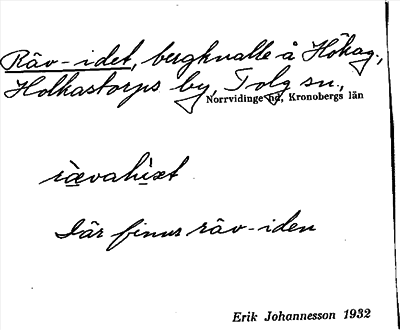 Räv-idet, bergknalle å Hökag.,
Holkastorps by, Tolg sn.,
Norrvidinge hd, Kronobergs län
Där finns räv-iden
Erik Johannesson 1932